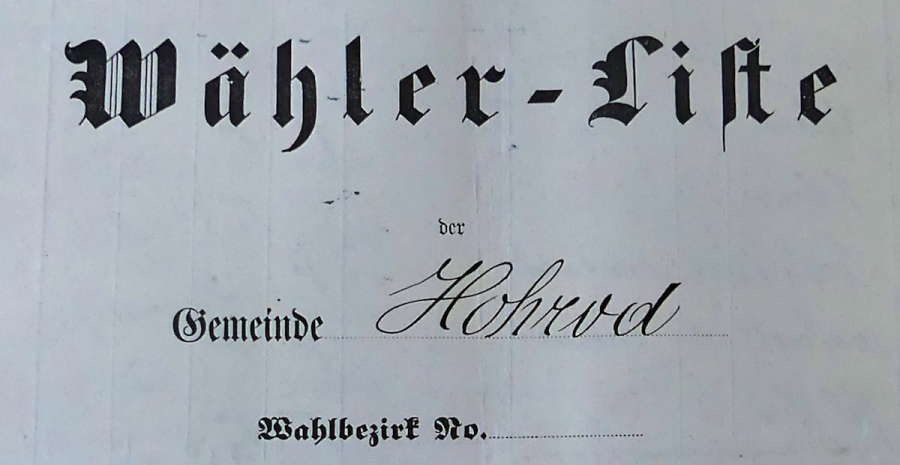 Wähler-Liste
der
Gemeinde Hohrod
Wahlbezirk No.